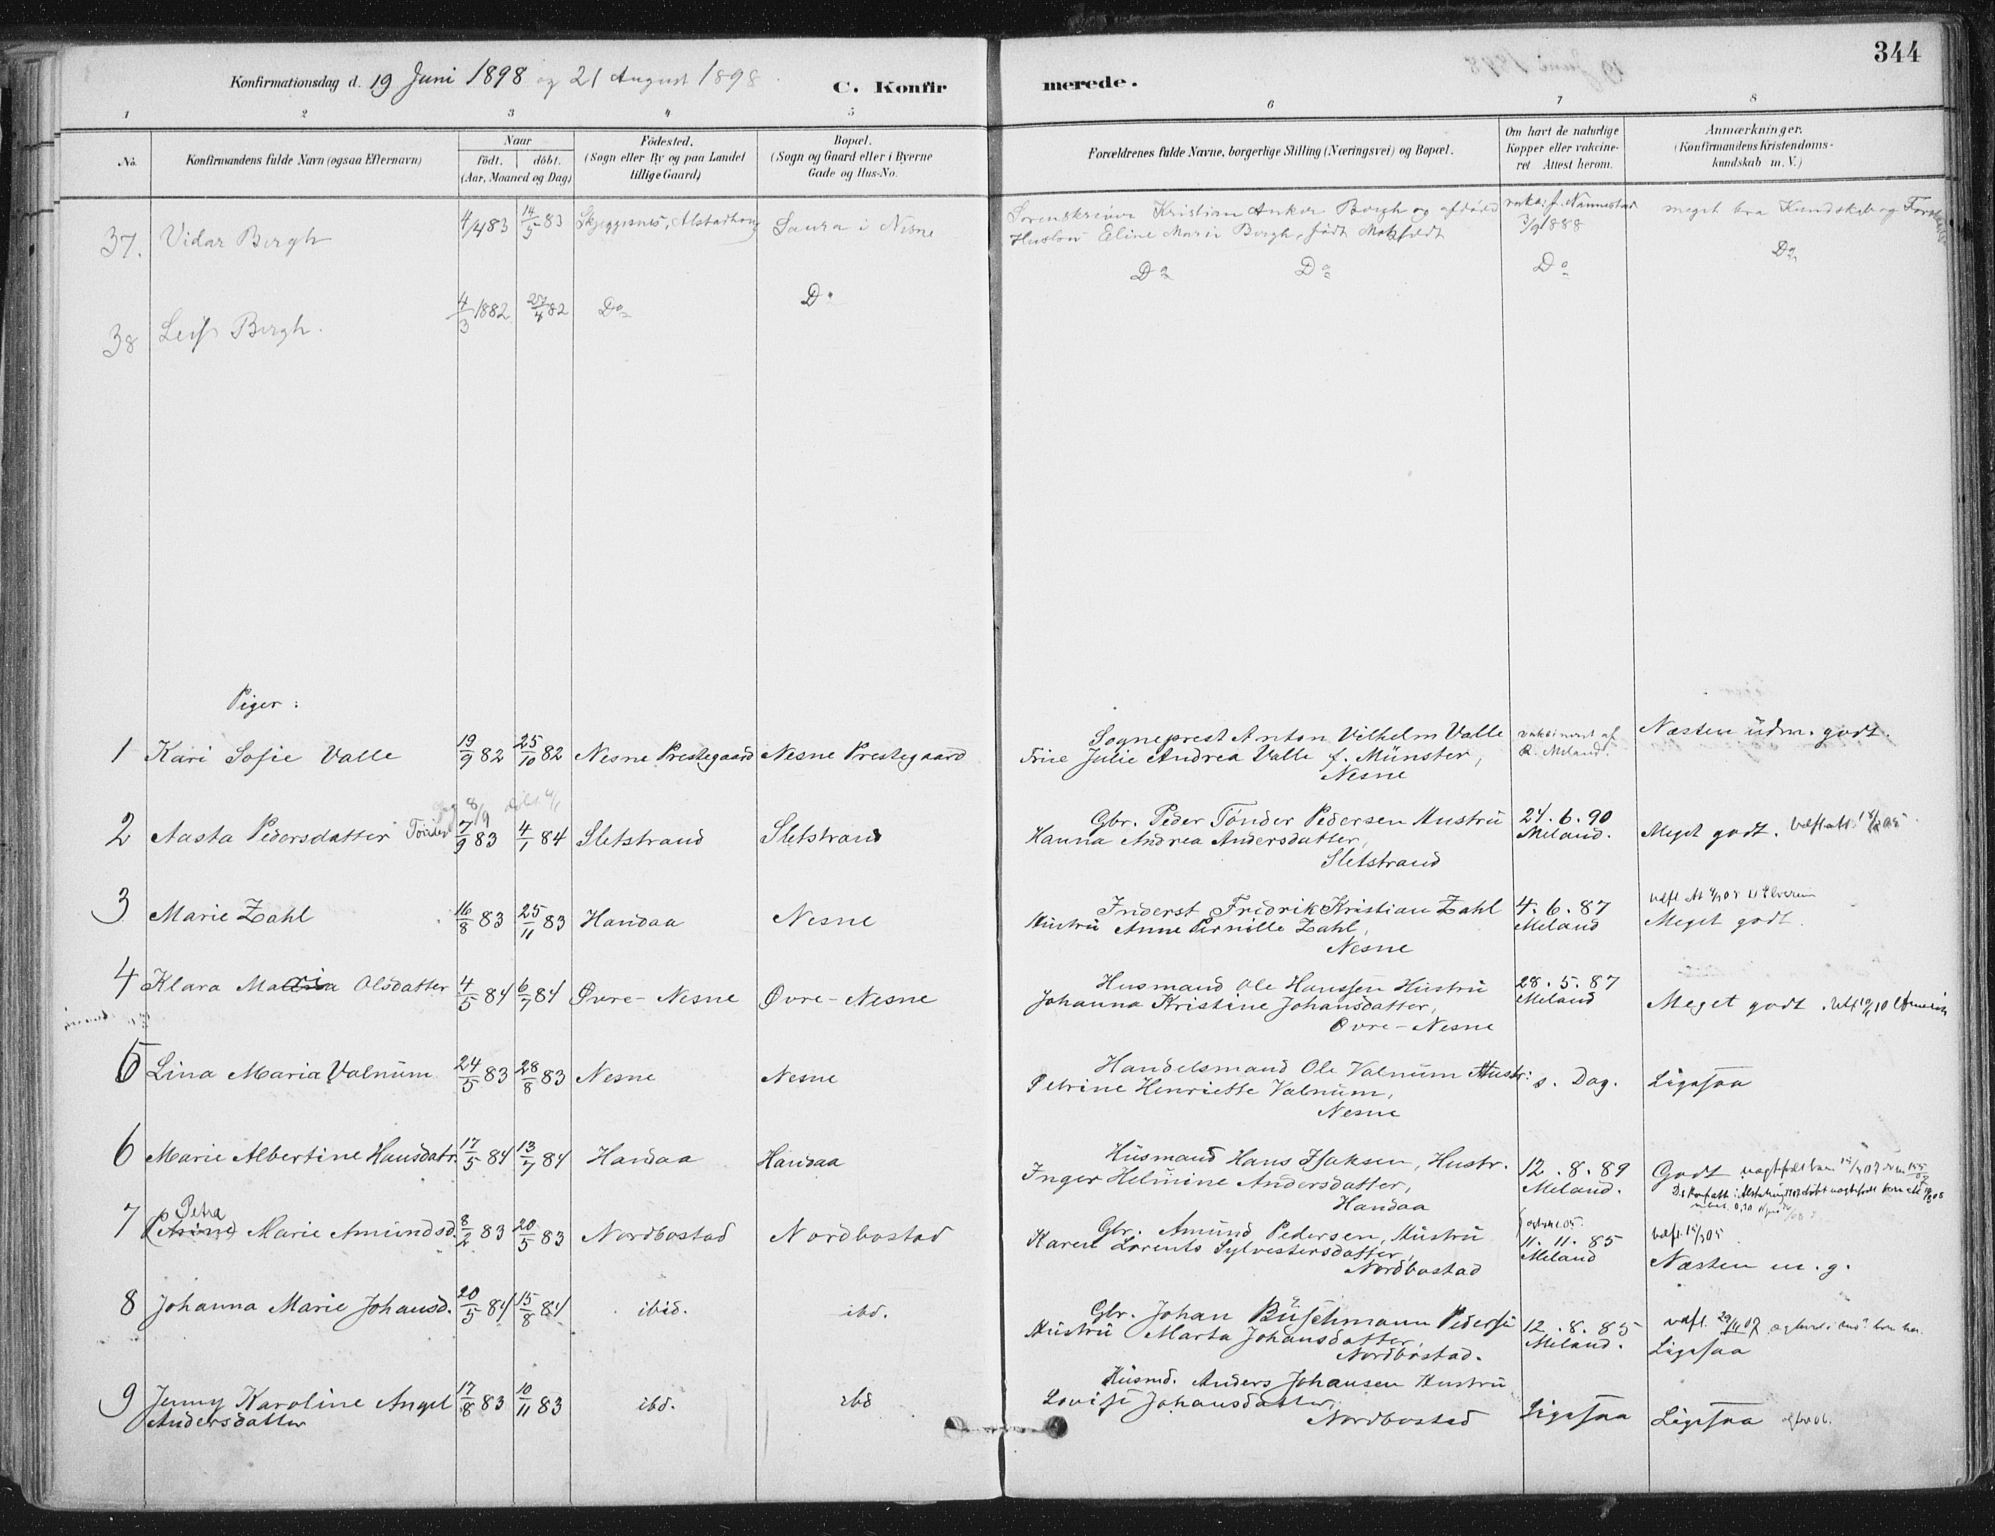 344
Konfirmationsdag d. 19 Juni 1898 og 21 August 1898 C. Konfirmerede.
1 2 3 4 5 6 7 8
No. Konfirmandens fulde Navn (ogsaa Efternavn) Naar födt. döbt. (Aar, Maaned og Dag) Födested. (Sogn eller By og paa Landet tillige Gaard) Bopæl. (Sogn og Gaard eller i Byerne Gade og Hus-No. Forældrenes fulde Navne, borgerlige Stilling (Næringsvei) og Bopæl. Om havt de naturlige Kopper eller vakcineret Attest herom. Anmærkninger. (Konfirmandens Kristendomskundskab m. V.)
37. Vidar Bergh 4/4 83 14/5 83 Skjeggesnes, Alstadhoug Saura i Nesne Sorenskriver Kristian Anker Bergh og afdøde
Hustru Eline Marie Bergh, født 3/9 1888 meget bra Kundskab og
38 Leif Bergh. 4/3 1882 27/4 82 Do Do Do Do Do Do
Piger:
1 Kari Sofie Valle 19/9 82 25/10 82 Nesne Prestegaard Nesne Prestegaard Sogneprest Anton Vilhelm Valle
Frue Julie Andrea Valle f. Münster,
Nesne vaksineret af Meland. Næsten udm. godt.
2 Aasta Pedersdatter Tønder 7/9 83 4/1 84 Sletstrand Sletstrand Gbr. Peder Tønder Pedersen Hustru
Hanna Andrea Andersdatter,
Sletstrand 24.6.90 Meland. Meget godt.
3 Marie Zahl 16/8 83 25/11 83 Handaa Nesne Inderst Fredrik Kristian Zahl
Hustru Anne Pernille Zahl,
Nesne 4.6.87 Meland Meget godt.
4 Klara Maria Olsdatter 4/5 84 6/7 84 Øvre-Nesne Øvre-Nesne Husmand Ole Hanssen Hustru
Johanna Kristine Johansdatter,
Øvre-Nesne 28.5.87 Meland Meget godt.
5 Lina Maria Valnum 24/5 83 28/8 83 Nesne Nesne Handelsmand Ole Valnum Hustr:
Petrine Henriette Valnum,
Nesne s. Dag. Ligesaa
6 Marie Albertine Hansdatr. 17/5 84 13/7 84 Handaa Handaa Husmand Hans Isaksen, Hustr.
Inger Helmine Andersdatter,
Handaa 12.8.89 Meland. Godt
7 Petra Marie Amundsd. 8/2 83 20/5 83 Nordbostad Nordbostad Gbr. Amund Pedersen, Hustru
Karen Lorents Sylvestersdatter,
Nordbostad 11.11.85 Meland Næsten m.g.
8 Johanna Marie Johansd. 20/5 84 15/8 84 ibid. ibd. Gbr. Johan Buschmann Pedersen
Hustru Marta Johansdatter,
Nordbostad. 12.8.85 Meland. Ligesaa
9 Jenny Karoline Angel 17/8 83 10/11 83 ibd. ibd Husmd. Anders Johansen Hustru
Andersdatter Lovise Johansdatter,
Nordbostad Ligesaa Ligesaa